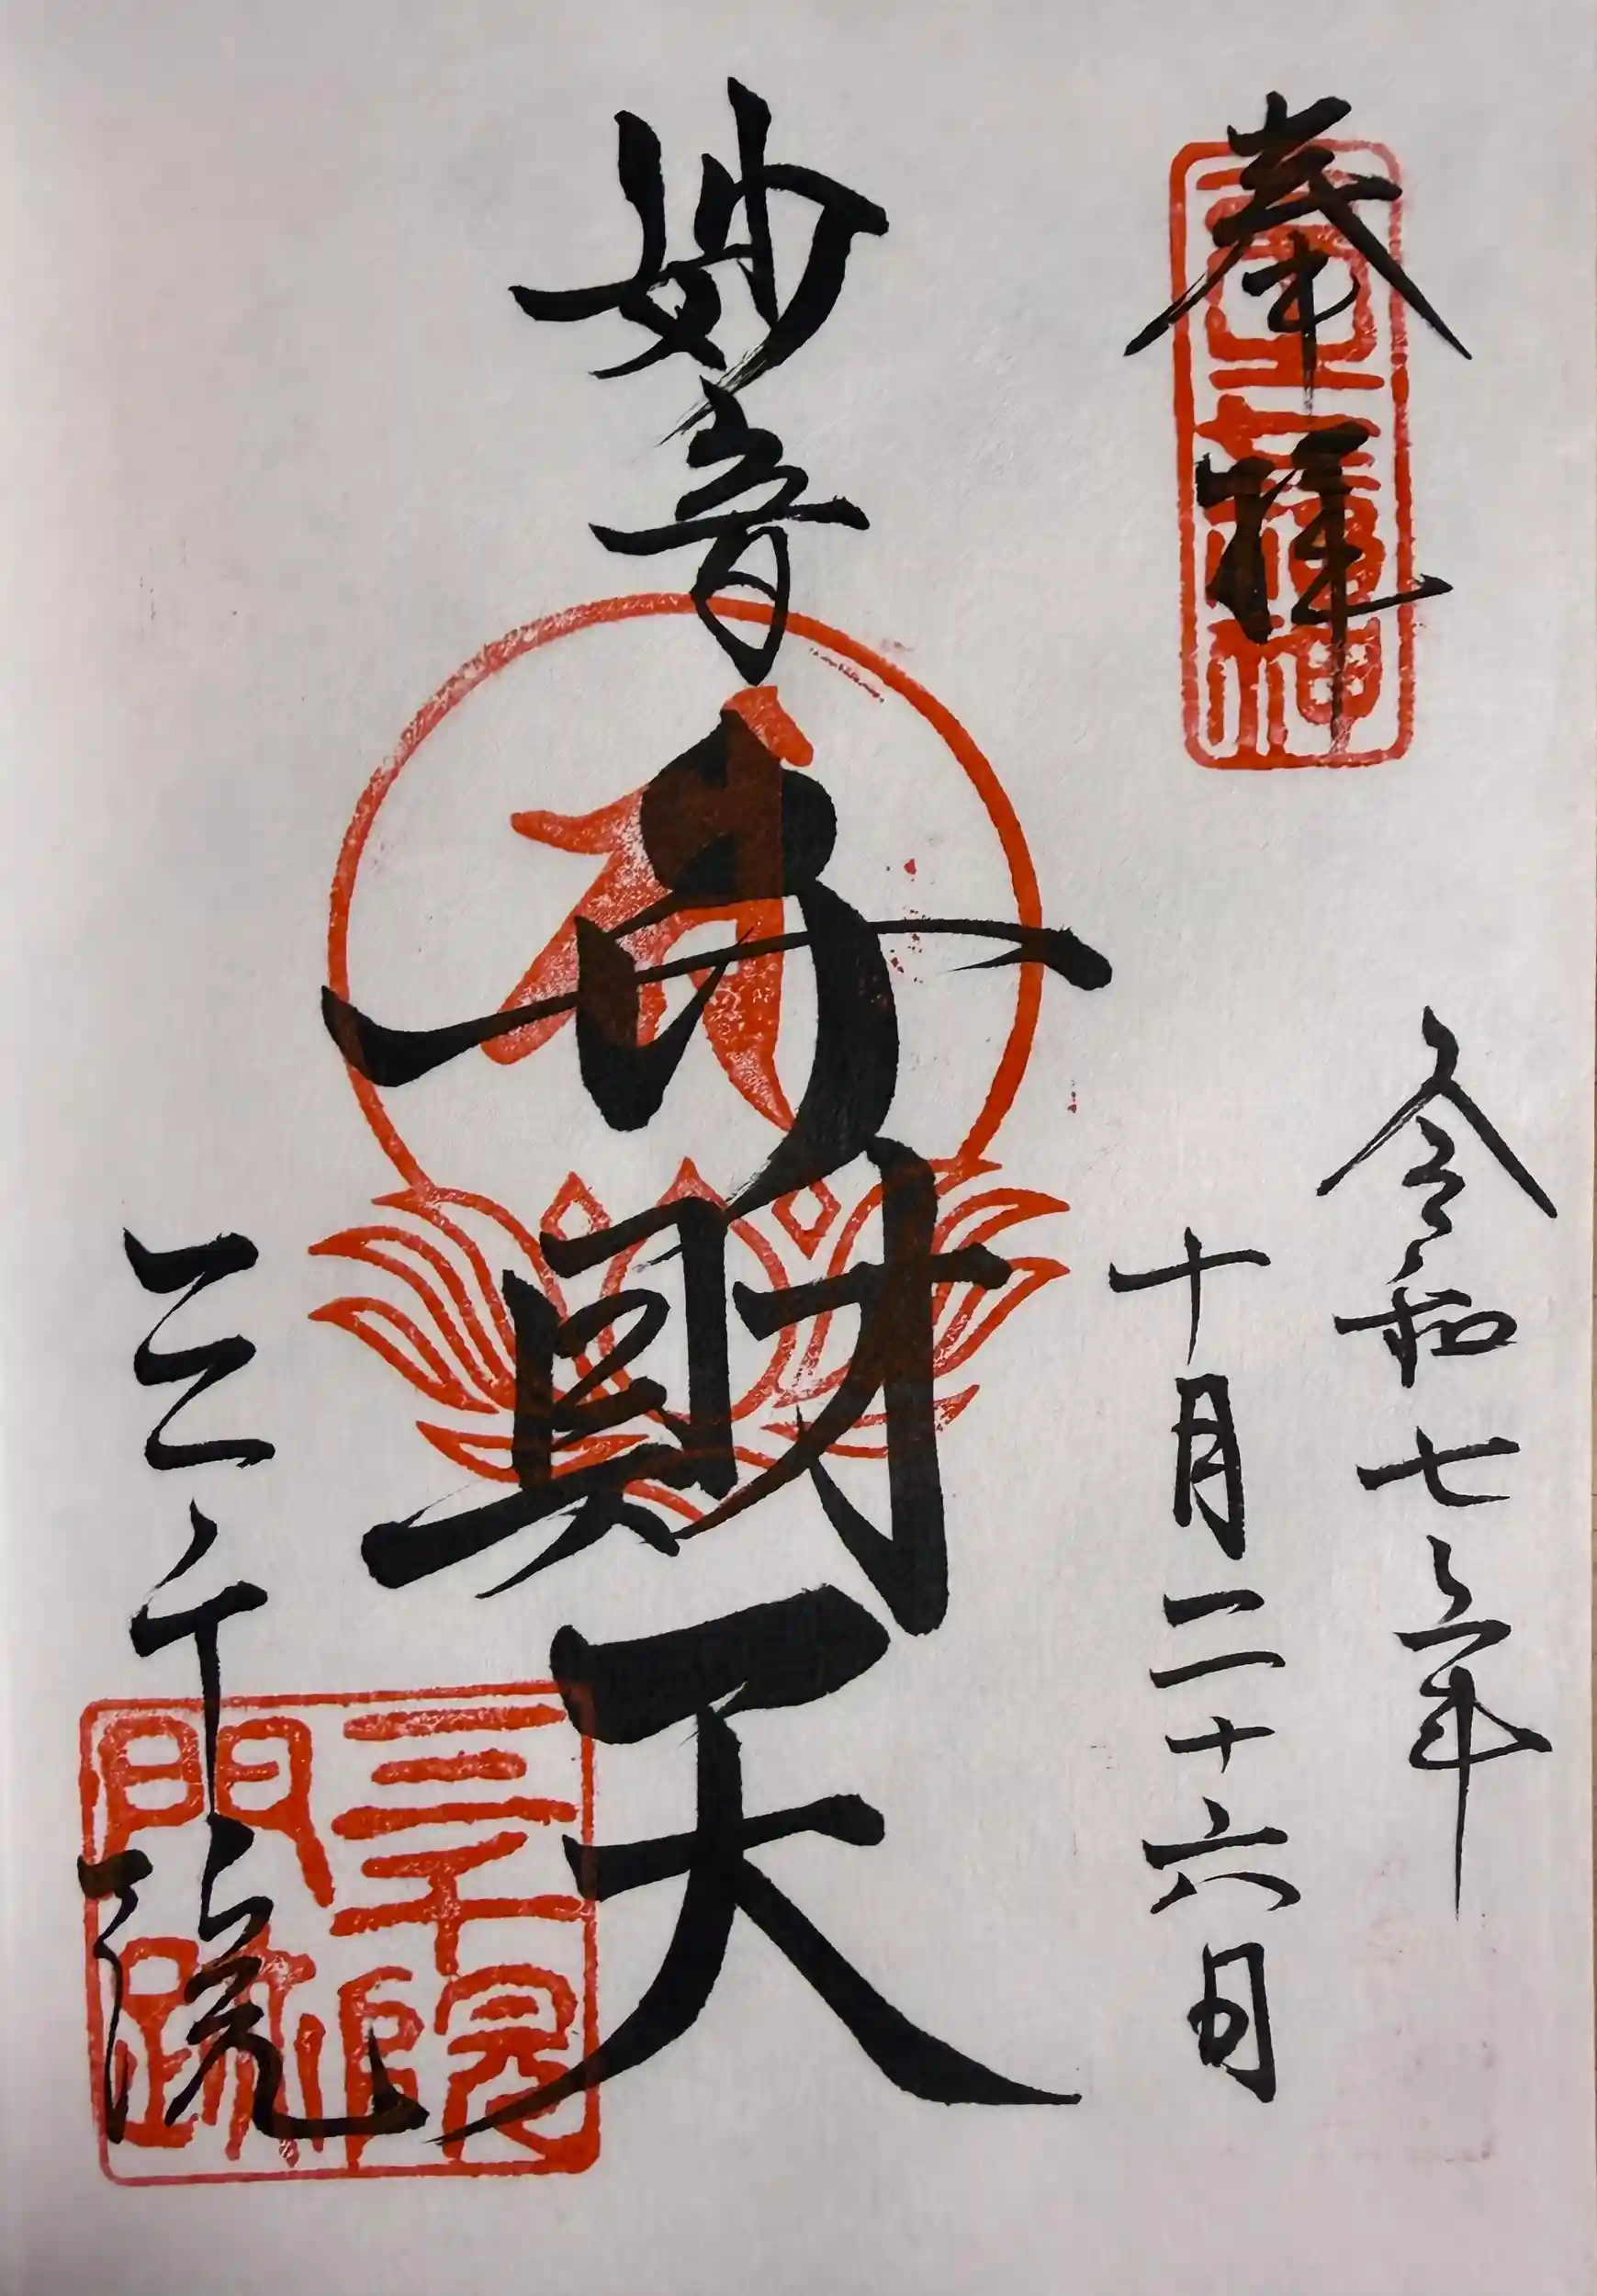 奉拝
令和七年
十月二十六日
妙音弁財天
三千院
三千院
門跡